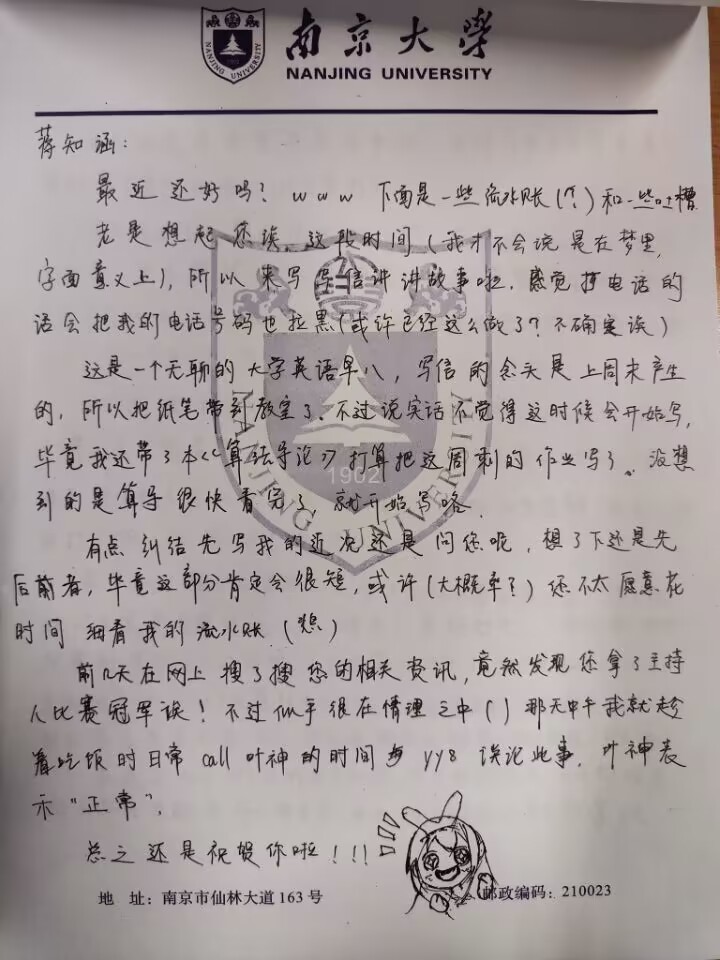 南京大学
NANJING UNIVERSITY
蒋知涵：
最近还好吗？www 下面是一些流水账(?)和一些吐槽
老是想起您诶，这段时间（我才不会说是在梦里，
字面意义上），所以来写写信讲讲故事啦，感觉打电话的
话会把我的电话号码也拉黑（或许已经这么做了？不确定诶）
这是一个无聊的大学英语早八，写信的念头是上周末产生
的，所以把纸笔带到教室了、不过说实话不觉得这时候会开始写，
毕竟我还带了本《算法导论》打算把这周剩的作业写了。没想
到的是算导很快看完了，就开始写咯.
有点纠结先写我的近况还是问您呢，想了下还是先
后前者，毕竟这部分肯定会很短，或许（大概率？）您不太愿意花
时间细看我的流水账（悲）
前几天在网上搜了搜您的相关资讯，竟然发现您拿了主持
人比赛冠军诶！不过似乎很在情理之中（）那天中午我就趁
着吃饭时日常call叶神的时间与yy8谈论此事，叶神表
示“正常”，
总之还是祝贺你啦！！！
地 址：南京市仙林大道163号 邮政编码：210023
NANJING UNIVERSITY
1902